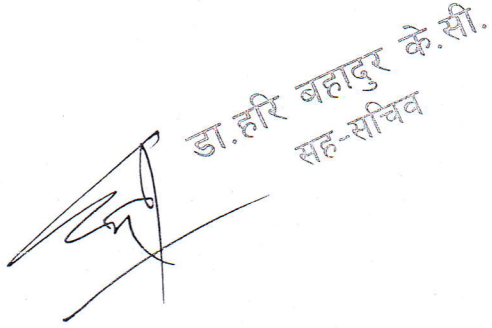 डा.हरि बहादुर के.सी.
सह-सचिव